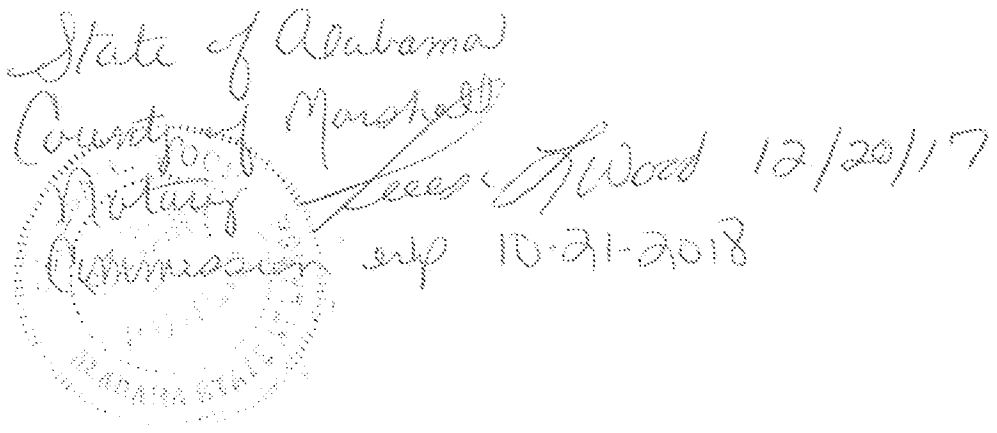 State of Alabama
County of Marshall
Notary L Wood 12/20/17
Commission exp 10-21-2018
ALABAMA STATE